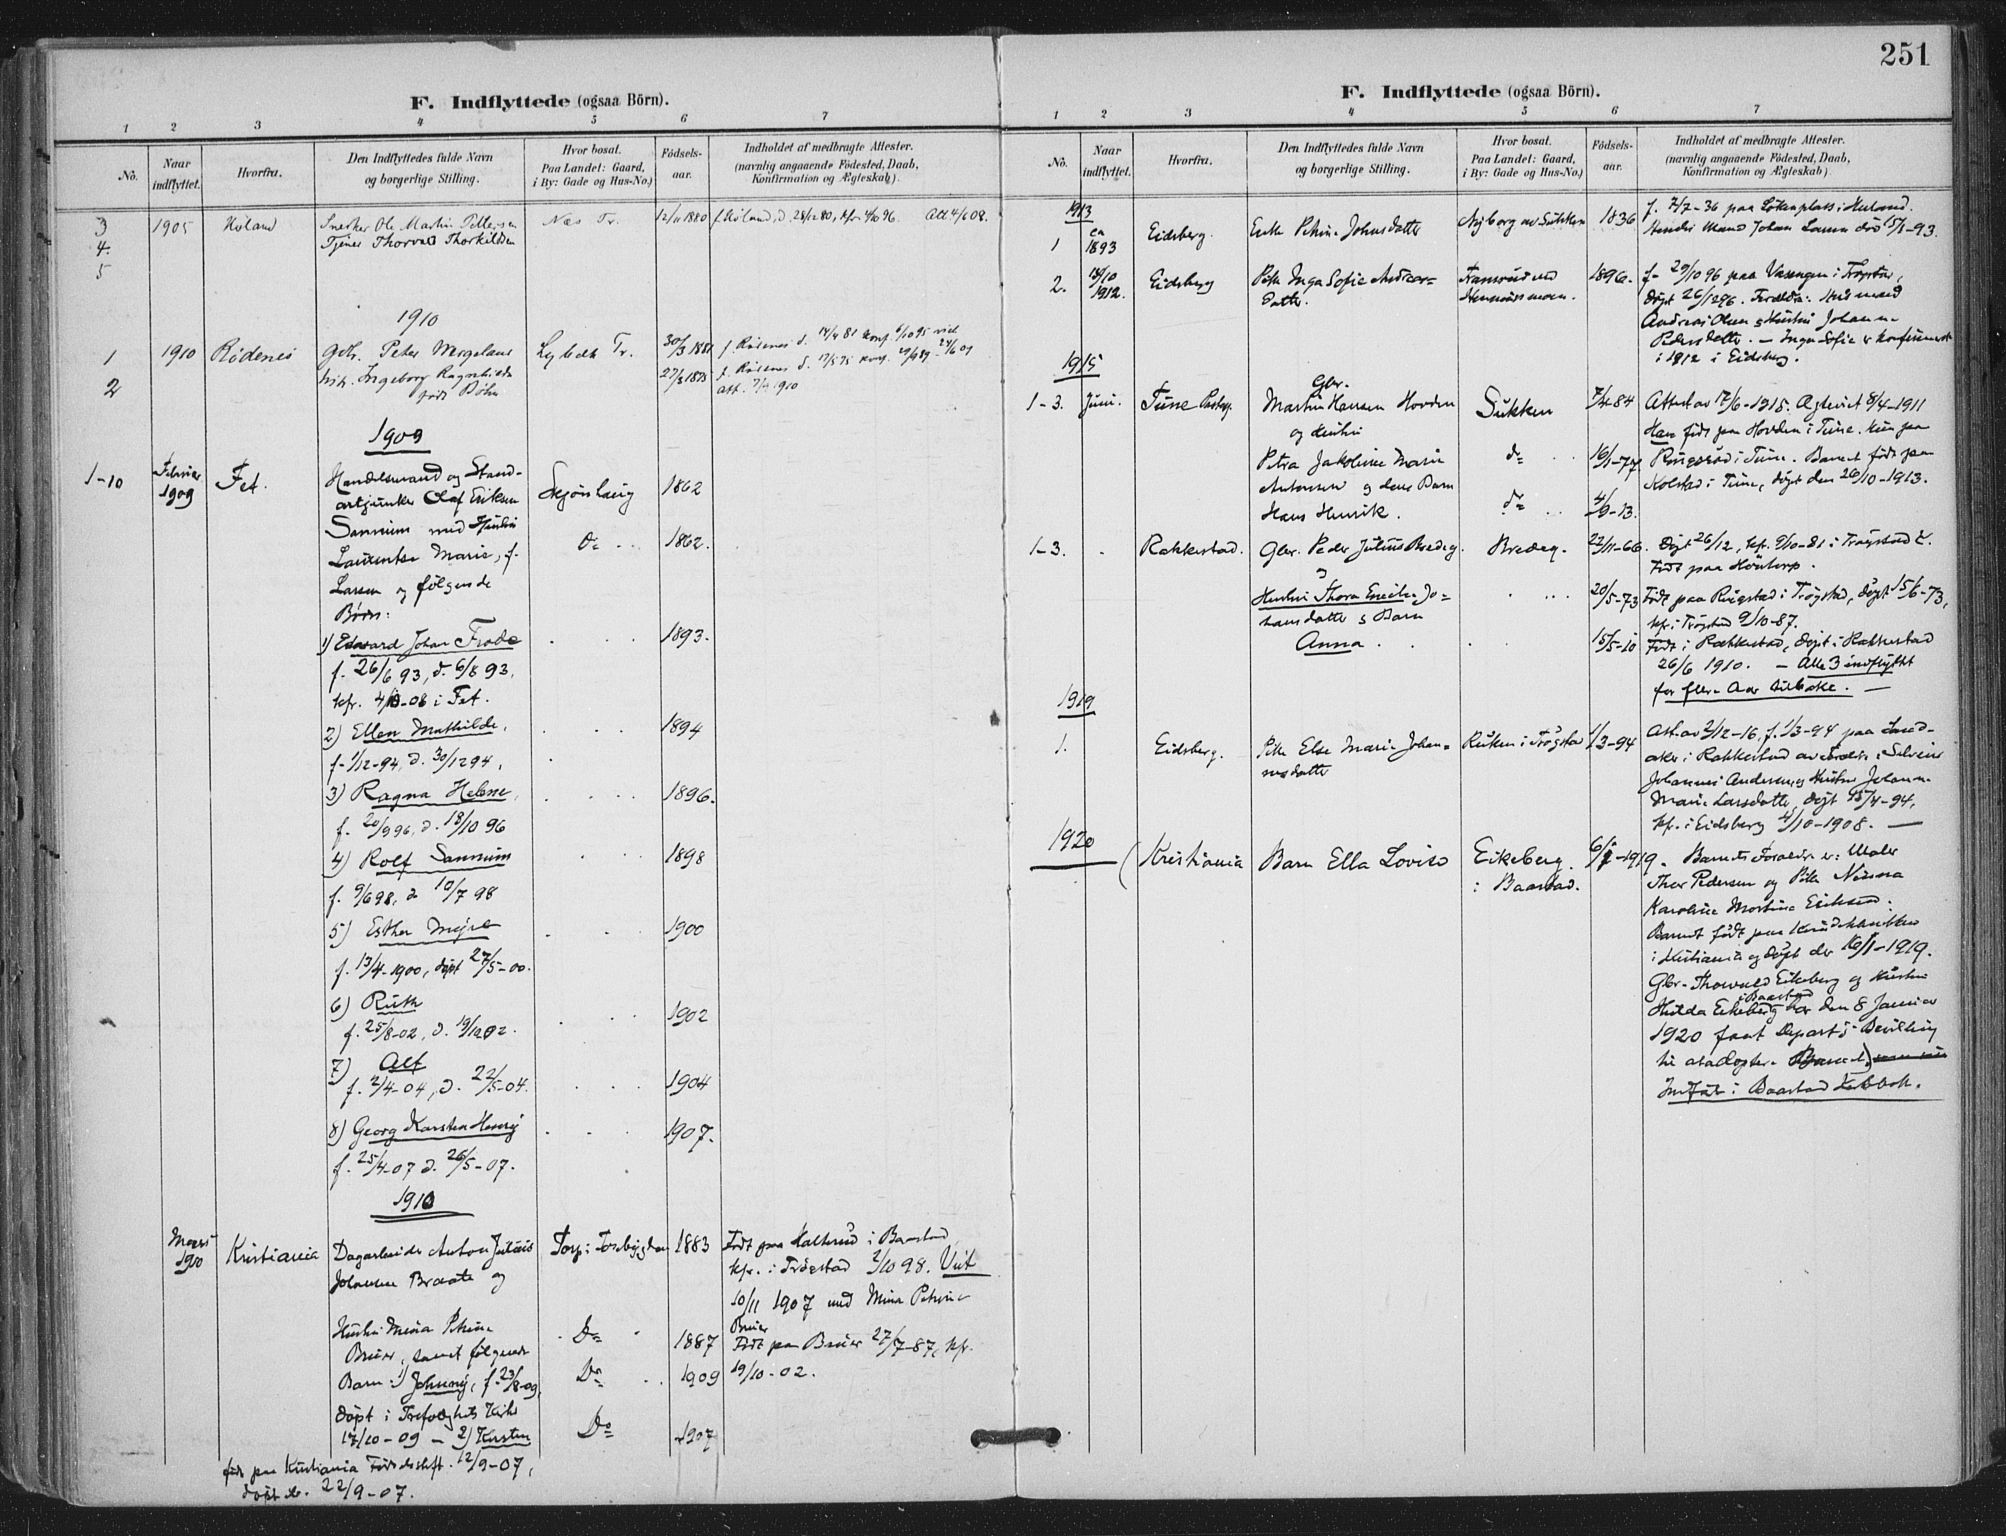 251
F. Indflyttede (ogsaa Börn).
1 2 3 4 5 6 7
No.
Naar indflyttet.
Hvorfra.
Den Indflyttedes fulde Navn og borgerlige Stilling.
Hvor bosat. Paa Landet: Gaard, i By: Gade og Hus-No.)
Födsels-aar.
Indholdet af medbragte Attester. (navnlig angaaende Födested, Daab, Konfirmation og Ægteskab).
3 1905 Höland Snedker Ole Martin Pettersen Næs Tr. 12/11 1880 f. Höland, d. 28/12 80, kfr 4/10 96. Att 4/6 08.
4. Tjener Thorvald Thorkildsen
5
1910
1 1910 Rödenes Gbr. Peter Wergeland Tr. 30/3 1881 f. Rödenes d. 17/4 81 konf. 6/10 95
2 Ingeborg Ragnhild 27/3 1875 f. Rödenes d. 17/5 75
født Bøhn att. 1910
1909
1-10 Februar 1909 Fet. Handelsmand og Stand-
artjunker Olaf Eriksen Skjønhaug 1862
Sannum med Hustru
Laurentse Marie, f. Do 1862.
Larsen og følgende
Børn:
1) Edvard Johan Frode 1893.
f. 26/6 93, d. 6/8 93,
kfr. 4/10-08 i Fet.
2) Ellen Mathilde, 1894
f. 1/12-94, d. 30/12 94,
3) Ragna Helene, 1896.
f. 20/9 96, d. 18/10 96
4) Rolf Sannum 1898
f. 9/6 98, d 10/7 98
5) Esther 1900
f. 13/4-1900, døpt 27/5-00.
6) Ruth 1902
f. 25/8-02, d. 19/10 02.
7) Alf
f. 2/4-04, d. 22/5-04. 1904
8) Georg Karsten Henry 1907.
f. 25/4-07 d. 26/5-07.
1910
Marts 1910 Kristiania Dagarbeider Anton Julius Torp i Tosebygden 1883 Født paa Kallerud i Baastad,
Johansen Braate og kfr. i Trøgstad 2/10 98. Viet
10/11 1907 med Mina Petrine
Hustru Mina Petrine Bruer
Bruer, samt følgende Do 1887 Født paa Bruer 27/7-87, kfr.
Barn: 1) Johnny, f. 23/8-09, Do 1909 19/10-02.
døpt i Trefoldigheds Kirke
17/10-09 – 2) Kirsten Do 1907
født paa Kristiania Fødselsstift. 12/9-07,
døpt d. 22/9-07.
F. Indflyttede (ogsaa Börn).
1 2 3 4 5 6 7
No.
Naar indflyttet.
Hvorfra.
Den Indflyttedes fulde Navn og borgerlige Stilling.
Hvor bosat. Paa Landet: Gaard, i By: Gade og Hus-No.)
Födsels-aar.
Indholdet af medbragte Attester. (navnlig angaaende Födested, Daab, Konfirmation og Ægteskab).
1913
1 ca 1893 Eidsberg. Enke Petrine Johnsdatter Nyborg av Sukken 1836 f. 7/7-36 paa Løkenplads i Høland.
Hendes Mand Johan Larsen død 15/1-93.
2. 13/10 1912. Eidsberg Pike Inga Sofie Andreas-
datter. 1896. f. 29/10 96 paa Vasengen i Trøgstad,
døpt 26/12 96. Forældre: Husmand
Andreas Olsen og Hustru Johanne
Pedersdatter. – Inga Sofie er konfirmeret
i 1912 i Eidsberg.
1915
1-3. Juni. Tune Prestegj. Gbr.
Martin Hansen Hovden Sukken 7/4-84 Attest av 17/6-1915. Ægteviet 8/4-1911
og Hustru Han født paa Hovden i Tune. Hun paa
Petra Jakobine Marie do 16/1-77 i Tune. Barnet født paa
Antonsen og deres Barn Kolstad i Tune, døpt den 26/10-1913.
Hans Henrik. do 4/9-13.
1-3. Rakkestad. Gbr. Peder Julius Bredeg. Bredeg. 22/11-66. Døpt 26/12, kfr. 9/10-81 i Trøgstad K.
og Født paa
Hustru Thora Emilie Jo- 20/5-73 Født paa Ringstad i Trøgstad, døpt 15/6-73,
hansdatter og Barn kfr. i Trøgstad 9/10-87.
Anna. 15/5-10 Født i Rakkestad, døpt i Rakkestad
26/6 1910. – Alle 3 indflyttet
for flere Aar tilbake. –
1919
1. Eidsberg. Pike Else Marie Johan-
nesdatter i Trøgstad 1/3-94 Att. av 2/12-16, f. 1/3-94 paa
i Rakkestad av Foreldre: Selveier
Johannes Andersen og Hustru Johanne
Marie Larsdatter, døpt 15/4-94,
kfr. i Eidsberg 4/10-1908. –
1920
Kristiania Barn Ella Lovise Eikeberg i Baastad. 6/1-1919. Barnets Foreldre er: Maler
Thor Pedersen og Pike
Karoline Martine Eriksen.
Barnet født paa Kvindeklinikken
i Kristiania og døpt der 16/1-1919.
Gbr. Thorvald Eikeberg og Hustru
Hilda Eikeberg i Baastad har den 8 Januar
1920 faat Departs Bevilling
til at adoptere Barnet,
Indført i Baastad Kirkebok.